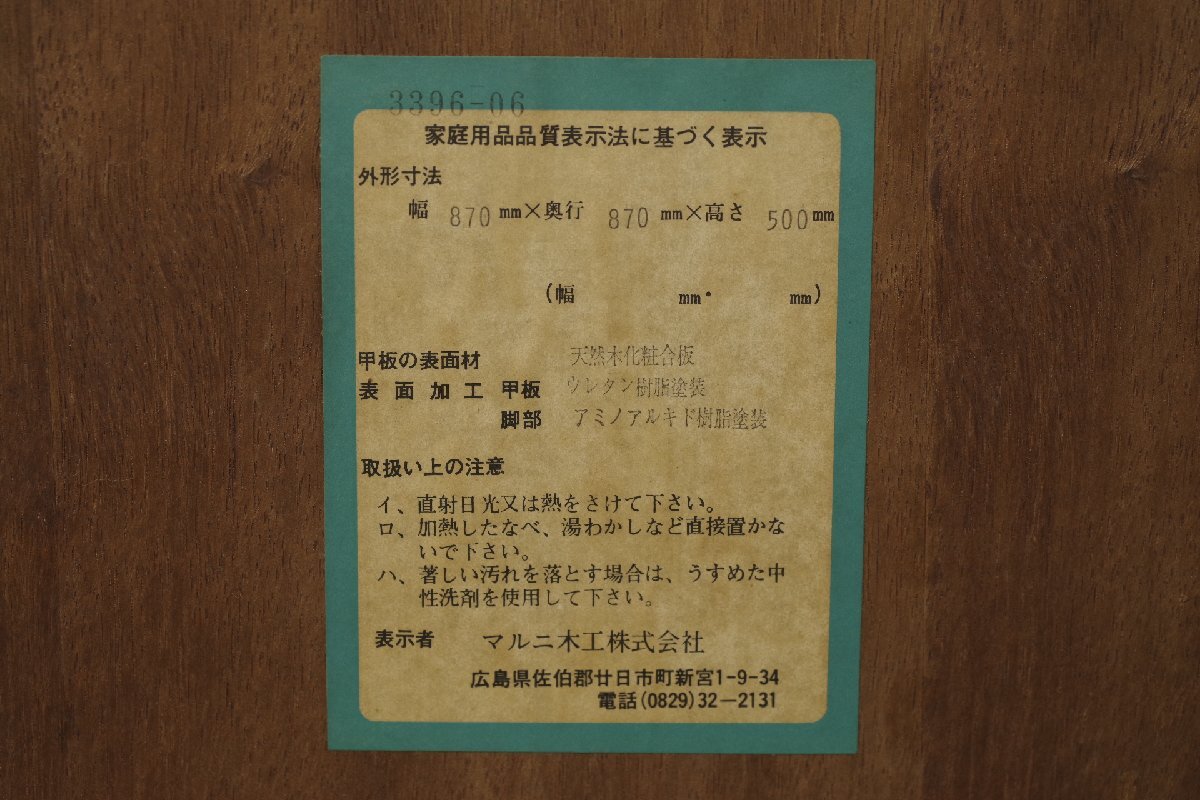 3396-06
家庭用品品質表示法に基づく表示
外形寸法
幅 870 mm×奥行 870 mm×高さ 500mm
(幅 mm・ mm)
甲板の表面材 天然木化粧合板
表面加工 甲板 ウレタン樹脂塗装
脚部 アミノアルキド樹脂塗装
取扱い上の注意
イ、直射日光又は熱をさけて下さい。
ロ、加熱したなべ、湯わかしなど直接置かな
いで下さい。
ハ、著しい汚れを落とす場合は、うすめた中
性洗剤を使用して下さい。
表示者 マルニ木工株式会社
広島県佐伯郡廿日市町新宮1-9-34
電話(0829)32-2131